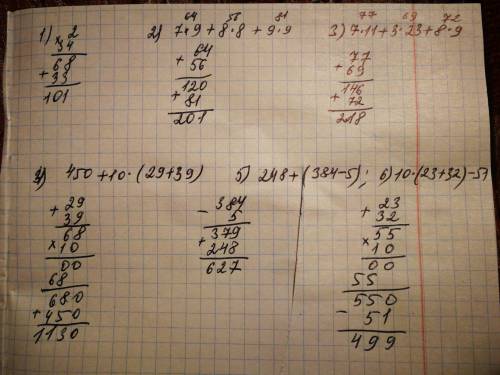 1) × 2
34
68
+ 33
101
64 56 81
2) 7·9 + 8·8 + 9·9
+ 64
56
120
+ 81
201
77 69 72
3) 7·11+3·23+8·9
+ 77
69
146
+ 72
218
4) 450+10·(29+39)
+ 29
39
68
× 10
00
68
680
+ 450
1130
5) 248+(384-5);
- 384
5
379
+ 248
627
6) 10·(23+32)-51
+ 23
32
55
× 10
00
55
550
- 51
499